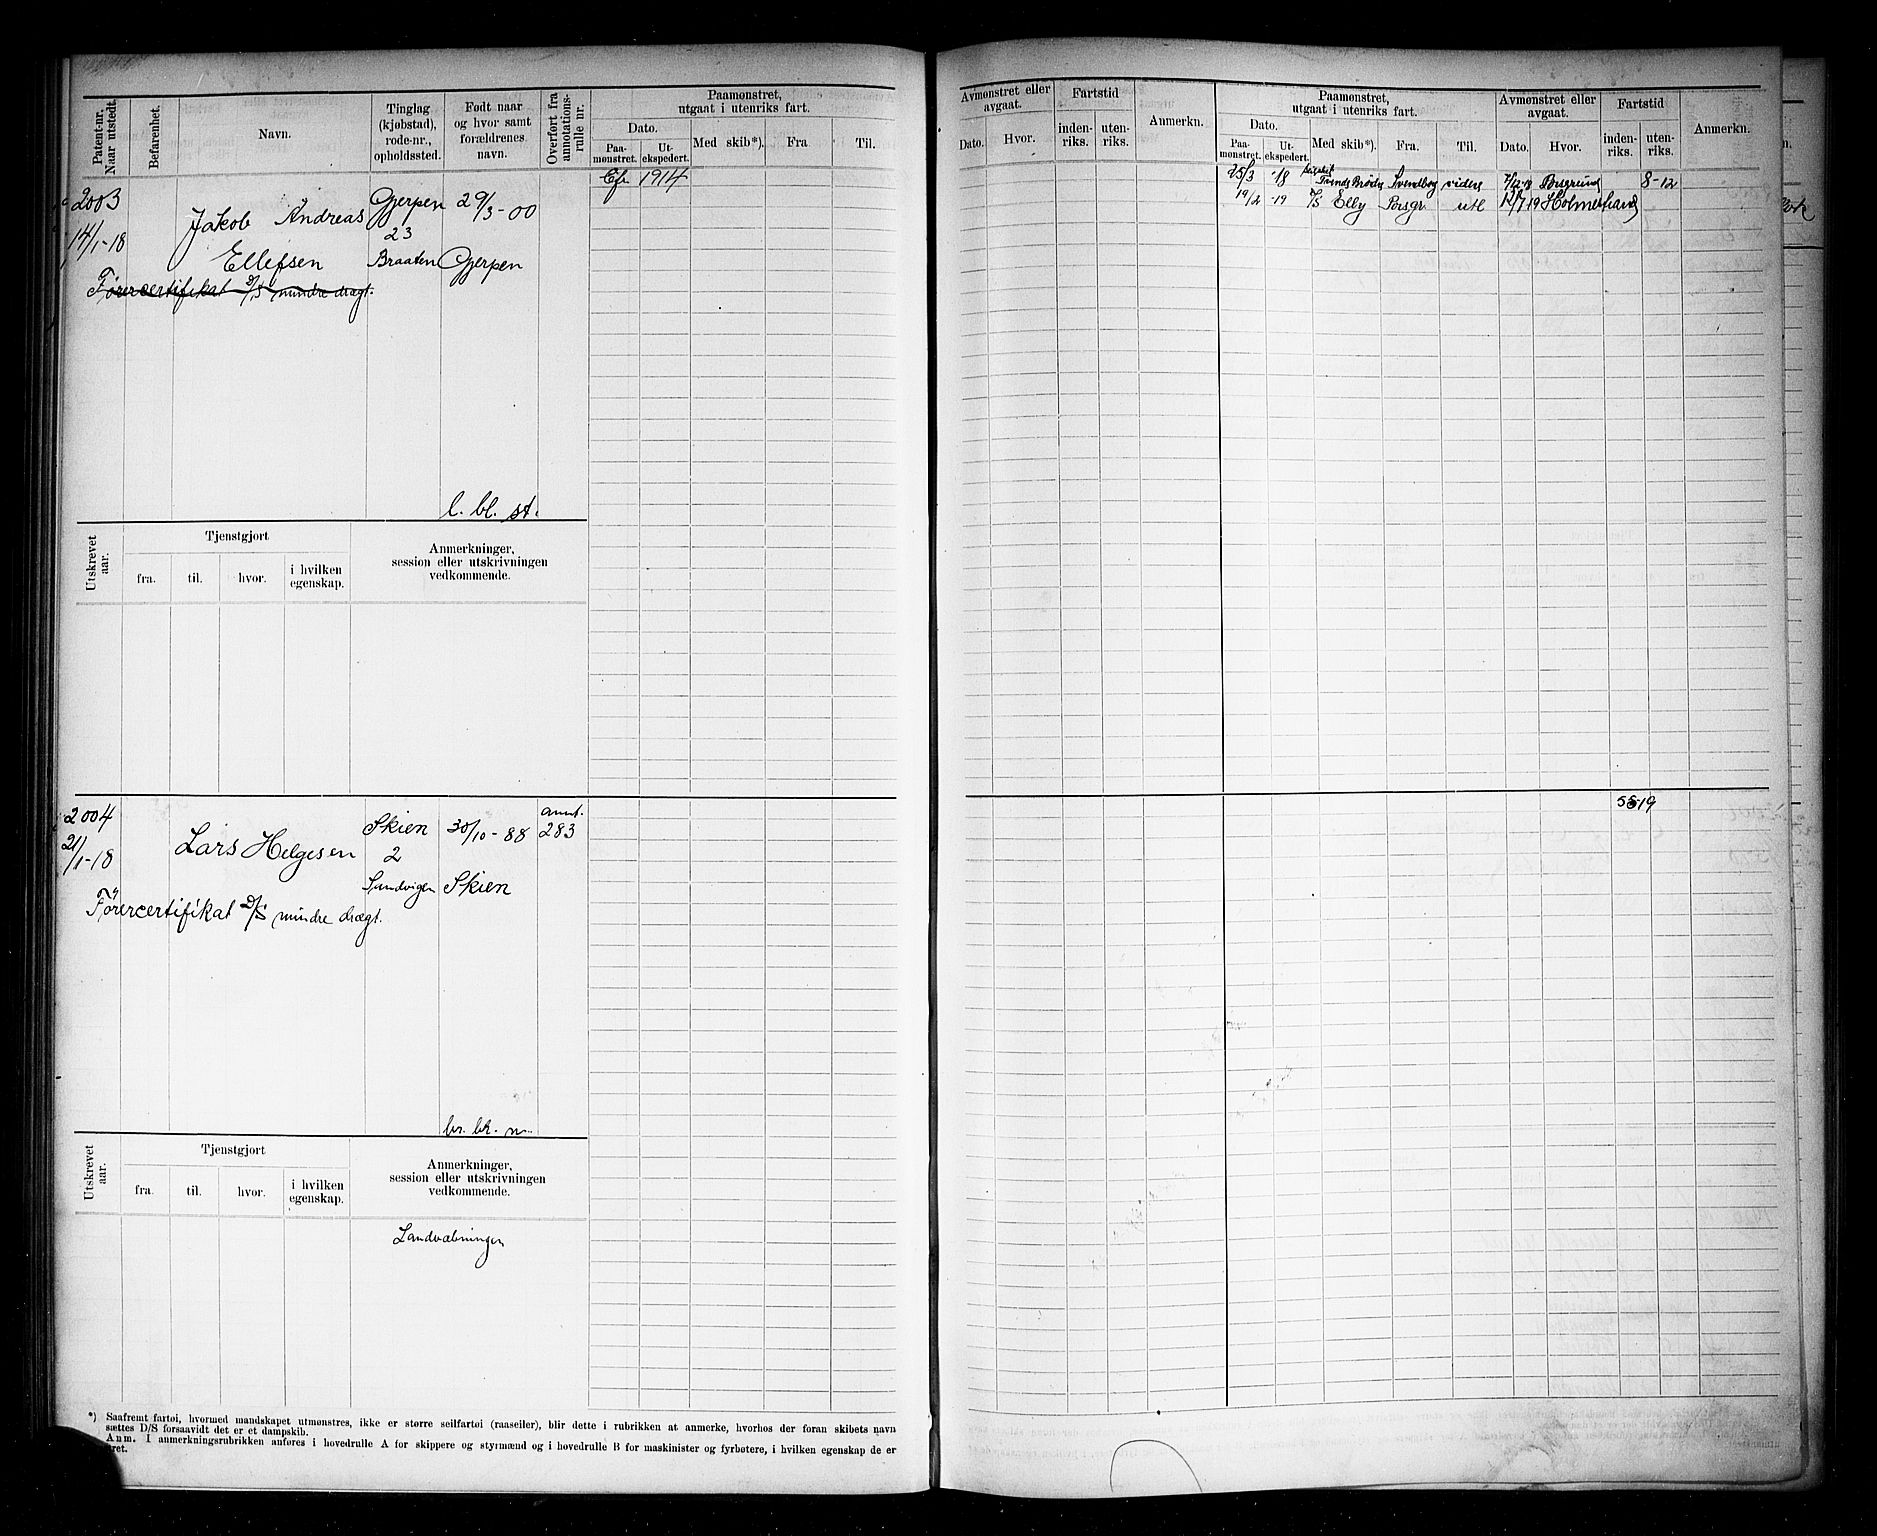 Patent-nr. Naar utstedt.
Befarenhet.
Navn.
Tinglag (kjøbstad), rode-nr., opholdssted.
Født naar og hvor samt forældrenes navn.
Overført fra annotations-rulle nr.
Paamønstret, utgaat i utenriks fart.
Dato.
Paa-mønstret.
Ut-ekspedert.
Med skib*).
Fra
Til.
2003
14/1-18
Jakob Andreas
Ellefsen
Gjerpen
23
Braaten
29/3-00
Gjerpen
Førercertifikat D/S mindre drægt.
1914
l. bl. st.
Utskrevet aar.
Tjenstgjort
fra.
til.
hvor.
i hvilken egenskap.
Anmerkninger, session eller utskrivningen vedkommende.
2004
21/1-18
Lars Helgesen
Skien
2
Sandvigen
30/10-88
Skien
annt.
283
Førercertifikat D/S mindre drægt.
br. bl. m.
Utskrevet aar.
Tjenstgjort
fra.
til.
hvor.
i hvilken egenskap.
Anmerkninger, session eller utskrivningen vedkommende.
Landvæbningen
*) Saafremt fartøi, hvormed mandskapet utmønstres, ikke er større seilfartøi (raaseiler), blir dette i rubrikken at anmerke, hvorhos der foran skibets navn
sættes D/S forsaavidt det er et dampskib.
Anm. I anmerkningsrubrikken anføres i hovedrulle A for skippere og styrmænd og i hovedrulle B for maskinister og fyrbøtere, i hvilken egenskap de er
Avmønstret eller avgaat.
Dato.
Hvor.
Fartstid
inden-riks.
uten-riks.
Anmerkn.
Paamønstret, utgaat i utenriks fart.
Dato.
Paa-mønstret.
Ut-ekspedert.
Med skib*).
Fra.
Til.
Avmønstret eller avgaat.
Dato.
Hvor.
Fartstid
inden-riks.
uten-riks.
Anmerkn.
25/3 -18 Brødr Svendborg videre Porsgrund 8-12
19/2 -19 D/S Elby Porsgr utl /7 19 Holmestrand